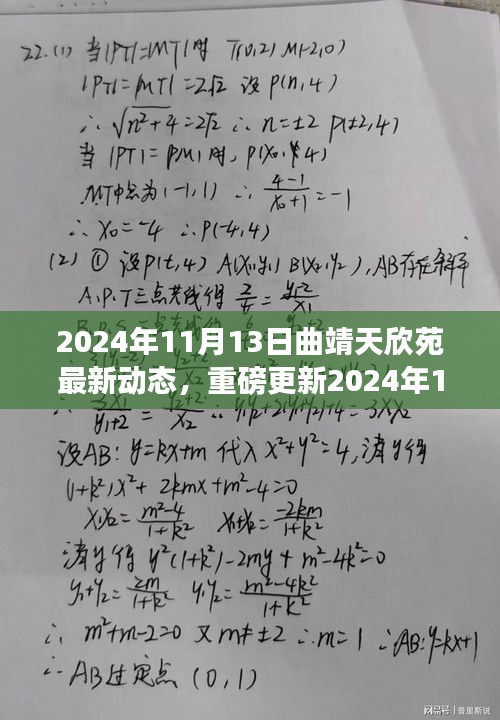 22.(1) 当|PT|=|MT|时 T(0,2) M(-2,0)
|PT|=|MT|=2√2 设P(n,4)
∴√(n²+4)=2√2 ∴n=±2 P(±2,4)
当|PT|=|PM|时,P(x₀,4)
MT中点为(-1,1) ∴(4-1)/(x₀+1)=-1
∴x₀=-4 ∴P(-4,4)
(2) ① 设P(t,4) A(x₁,y₁) B(x₂,y₂),AB存在斜率
A.P.T三点共线得
2024年11月13日曲靖天欣苑
最新动态，重磅更新2024年1
设AB:y=kx+m 代入x²+y²=4,消y得
(1+k²)x²+2kmx+m²-4=0
x₁x₂=(m²-4)/(1+k²) x₁+x₂=-2km/(1+k²)
消x得 y²(1+k²)-2my+m²-4k²=0
y₁+y₂=2m/(1+k²) y₁y₂=(m²-4k²)/(1+k²)
∴ m²+m-2=0 又m≠±2 ∴m=1 ∴AB:y=kx+1
∴AB过定点(0,1)
搜狐号@普里斯说